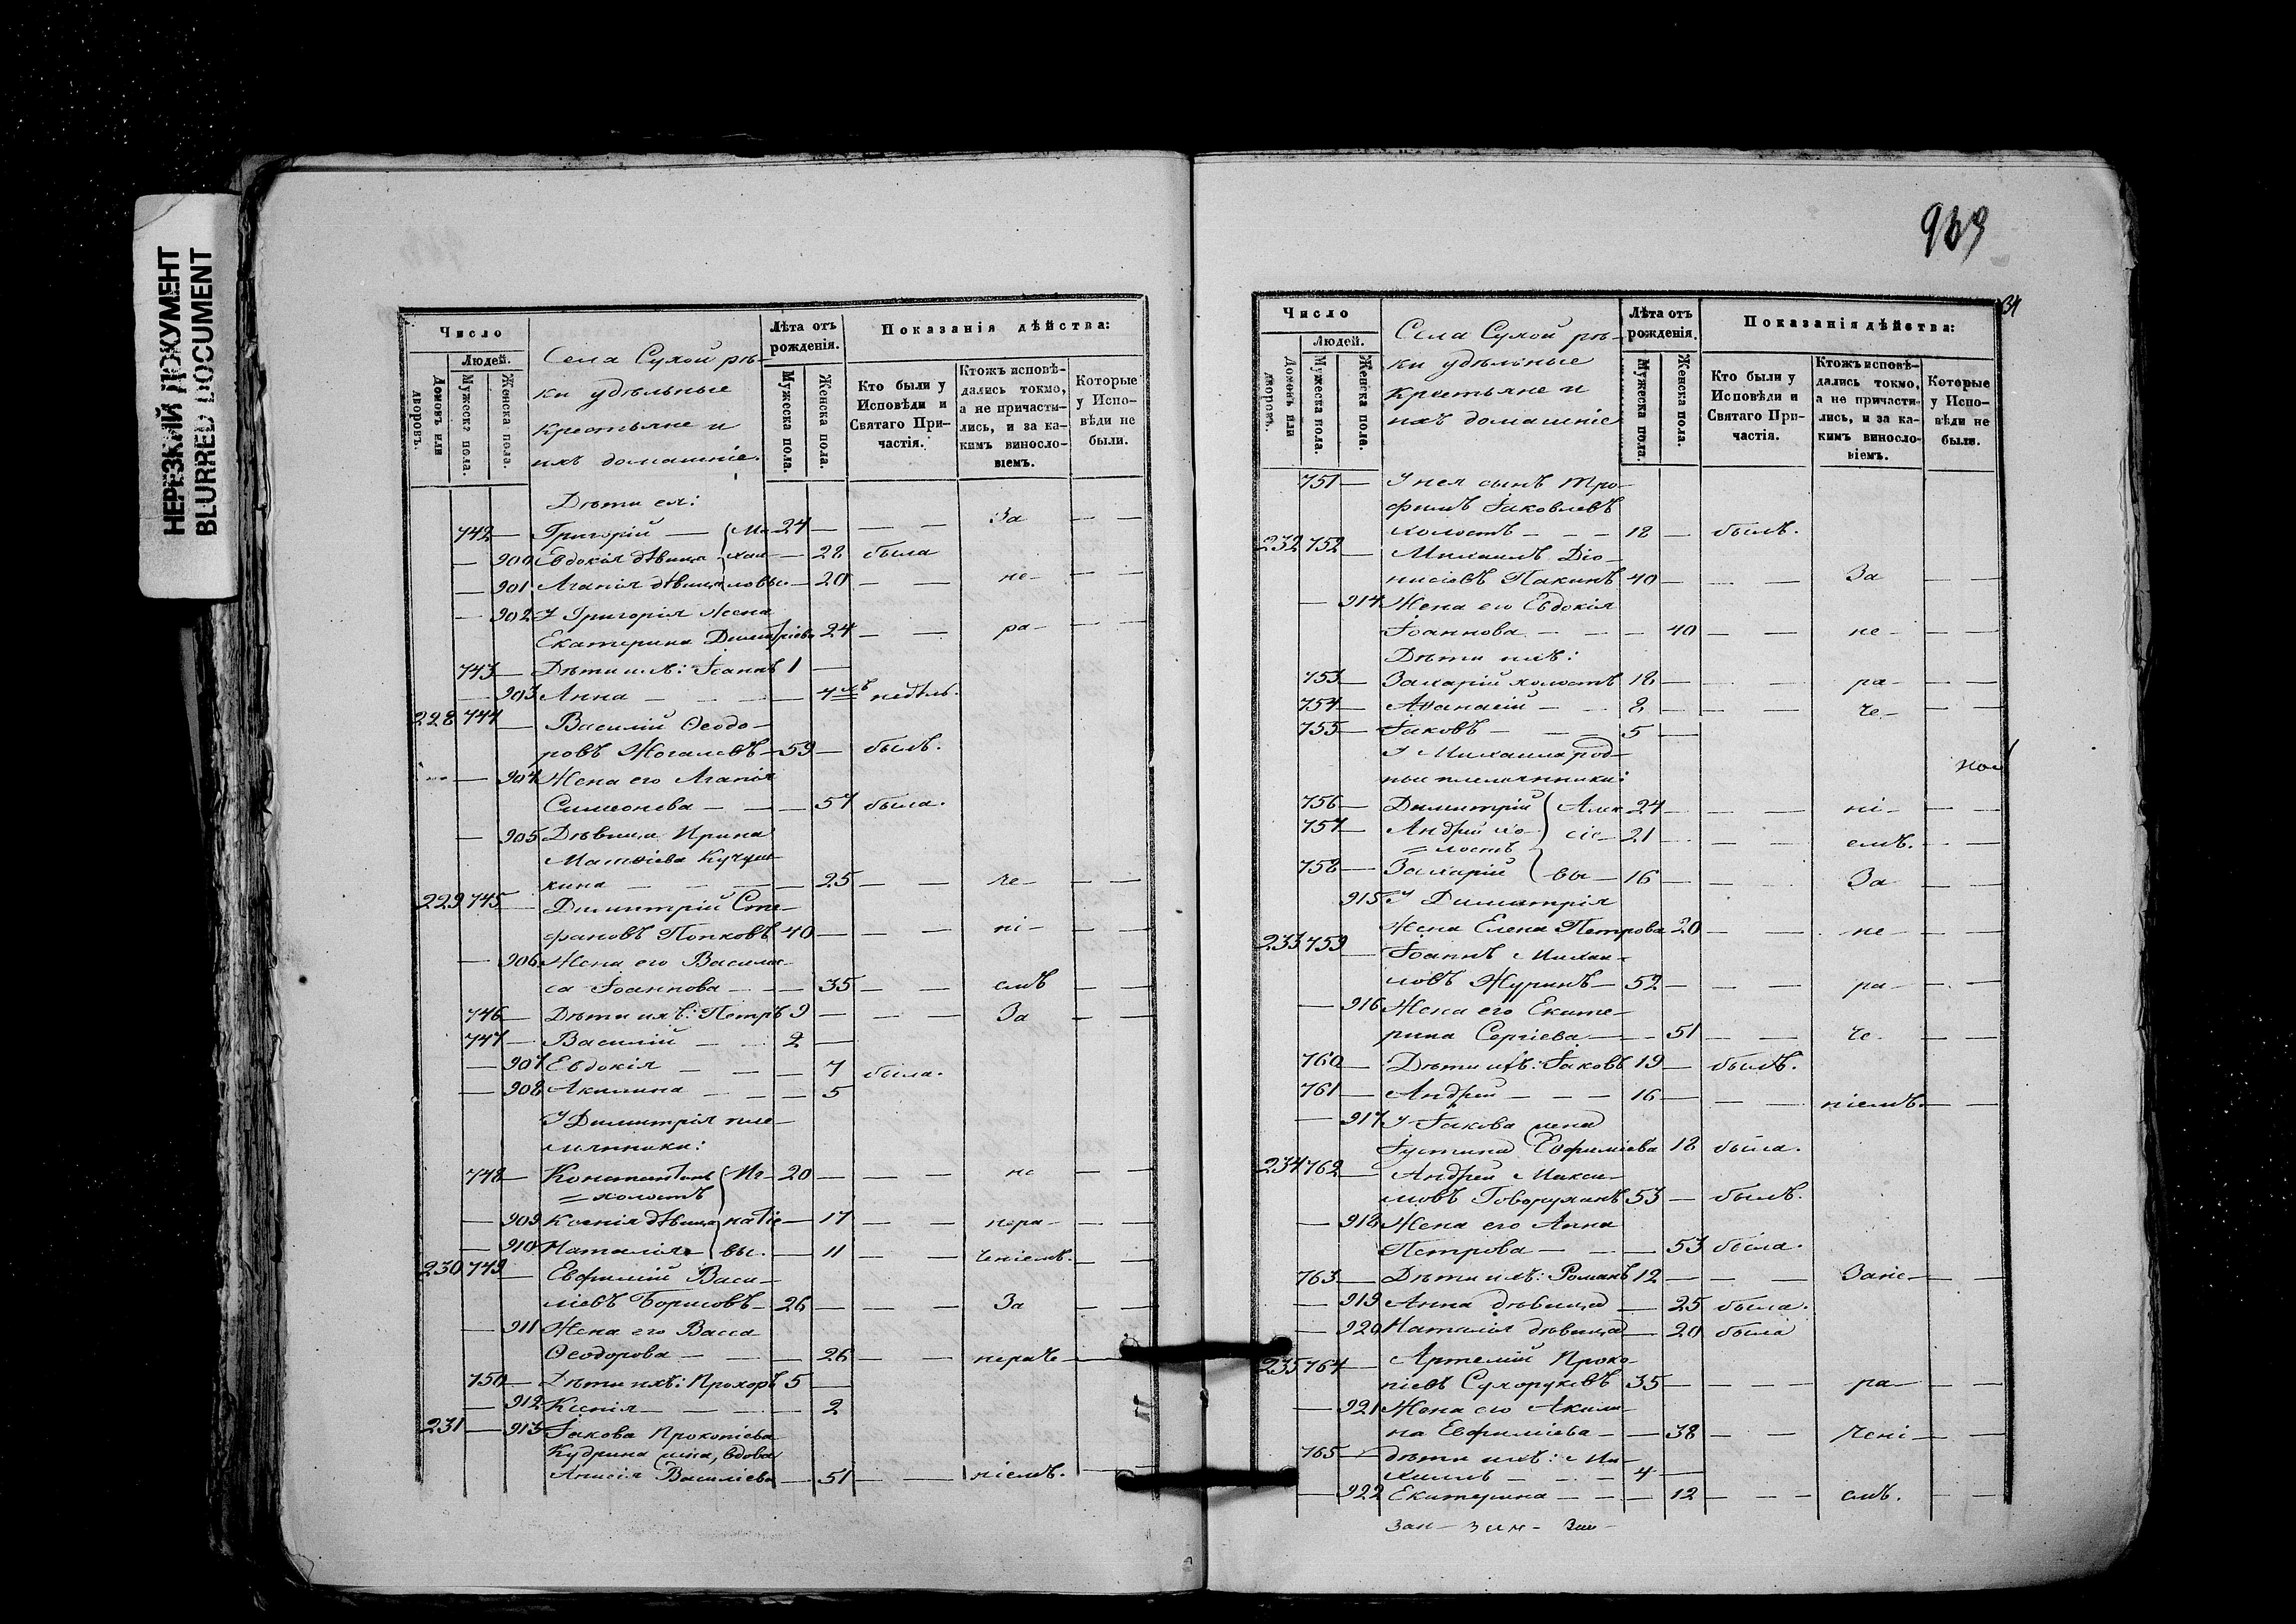 НЕРЕЗКИЙ ДОКУМЕНТ
BLURRED DOCUMENT
Число
Людей.
Домовъ или дворовъ.
Мужеска пола.
Женска пола.
Села Сухой рѣ-
ки удѣльные
крестьяне и
ихъ домашніе.
Лѣта отъ рожденія.
Мужеска пола.
Женска пола.
Показанія дѣйства:
Кто были у Исповѣди и Святаго Причастія.
Ктожъ исповѣдались токмо, а не причастились, и за какимъ винословіемъ.
Которые у Исповѣди не были.
Дѣти ея:
742 — Григорій — (Ми- 24 — — — За — —
— 900 Евдокія дѣвица хаи- — 22 была
— 901 Агапія дѣвица ловы — 20 — — не- — —
— 902 У Григорія жена
Екатерина Димитріева 24 — — ра- — —
743 — Дѣти ихъ: Іоаннъ 1 —
— 903 Анна — — — 4хъ недѣль.
228 744 — Василій Ѳеодо-
ровъ Жогалевъ — 59 — былъ.
— 904 Жена его Агапія
Симеонова — — — 57 была.
— 905 Дѣвица Ирина
Матѳіева
кина — — — 25 — — че- — —
229 745 — Димитрій Сте-
фановъ Попковъ 40 — — — ні- — —
— 906 Жена его Васили-
са Іоаннова — — 35 — — емъ — —
746 — Дѣти ихъ: Петръ 9 — — — За — —
747 — Василій — — 2 —
— 907 Евдокія — — — 7 была.
— 908 Акилина — — — 5
У Димитрія пле-
мянники:
748 — Константинъ (Иг- 20 — — — не — —
= холостъ
— 909 Ксенія дѣвица натіе — 17 — — нера- — —
— 910 Наталія — вы. — 11 — — ченіемъ. — —
230 749 — Евфимій Васи-
ліевъ Борисовъ — 26 — — — За — —
— 911 Жена его Васса
Ѳеодорова — — — 26 — — нераче- — —
750 — Дѣти ихъ: Прохоръ 5 —
— 912 Ксенія — — — 2
231 — 913 Іакова Прокопіева
Кудрина жена, вдова
Анисія Василіева — 51 — — ніемъ. — —
939
Число
Людей.
Домовъ или дворовъ.
Мужеска пола.
Женска пола.
Села Сухой рѣ-
ки удѣльные
крестьяне и
ихъ домашніе
Лѣта отъ рожденія.
Мужеска пола.
Женска пола.
Показанія дѣйства:
Кто были у Исповѣди и Святаго Причастія.
Ктожъ исповѣдались токмо, а не причастились, и за какимъ винословіемъ.
Которые у Исповѣди не были.
751 — У нея сынъ Тро-
фимъ Іаковлевъ
холостъ — — — 18 — былъ.
232 752 — Михаилъ Діо-
нисіевъ Пакинъ 40 — — — За — —
— 914 Жена его Евдокія
Іоаннова — — — 40 — — не- — —
Дѣти ихъ:
753 — Захарій холостъ 18 — — — ра- — —
754 — Аѳанасій — — 8 — — — че- — —
755 — Іаковъ — — — 5 —
У Михаила род-
ные племянники:
756 — Димитрій (Алек- 24 — — — ні- — —
757 — Андрей хо- сіе- 21 — — — емъ. — —
= лостъ
758 — Захарій вы — 16 — — — За — —
915 У Димитрія
жена Елена Петрова 20 — — не — —
233 759 — Іоаннъ Михаи-
ловъ Журинъ — 52 — — — ра- — —
— 916 Жена его Екате-
рина Сергіева — — 51 — — че- — —
760 — Дѣти ихъ: Іаковъ 19 — былъ.
761 — Андрей — — — 16 — — — ніемъ. — —
— 917 У Іакова жена
Іустина Евфиміева 18 была.
234 762 — Андрей Макси-
мовъ Говорухинъ 53 — былъ.
— 918 Жена его Анна
Петрова — — — 53 была.
763 — Дѣти ихъ: Романъ 12 — — — Зане- — —
— 919 Анна дѣвица — 25 была.
— 920 Наталія дѣвица — 20 была
235 764 — Артемій Проко-
піевъ Сухоруковъ 35 — — — ра- — —
— 921 Жена его Акили-
на Евфиміева — — 38 — — чені- — —
765 — дѣти ихъ: Ми-
хаилъ — — — 4 —
— 922 Екатерина — — — 12 — — — емъ. — —